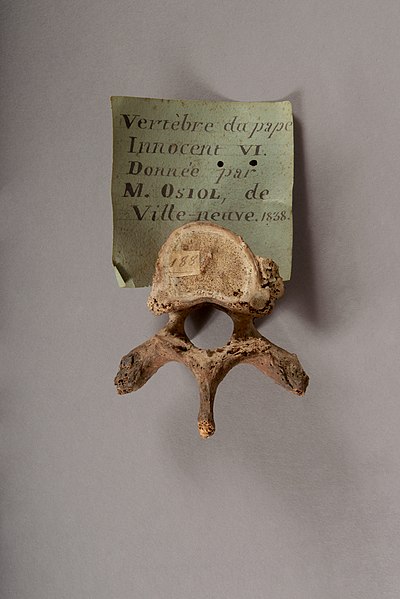 Vertèbre du pape
Innocent VI.
Donnée par
M. OSIOL, de
Ville-neuve. 1838.
188